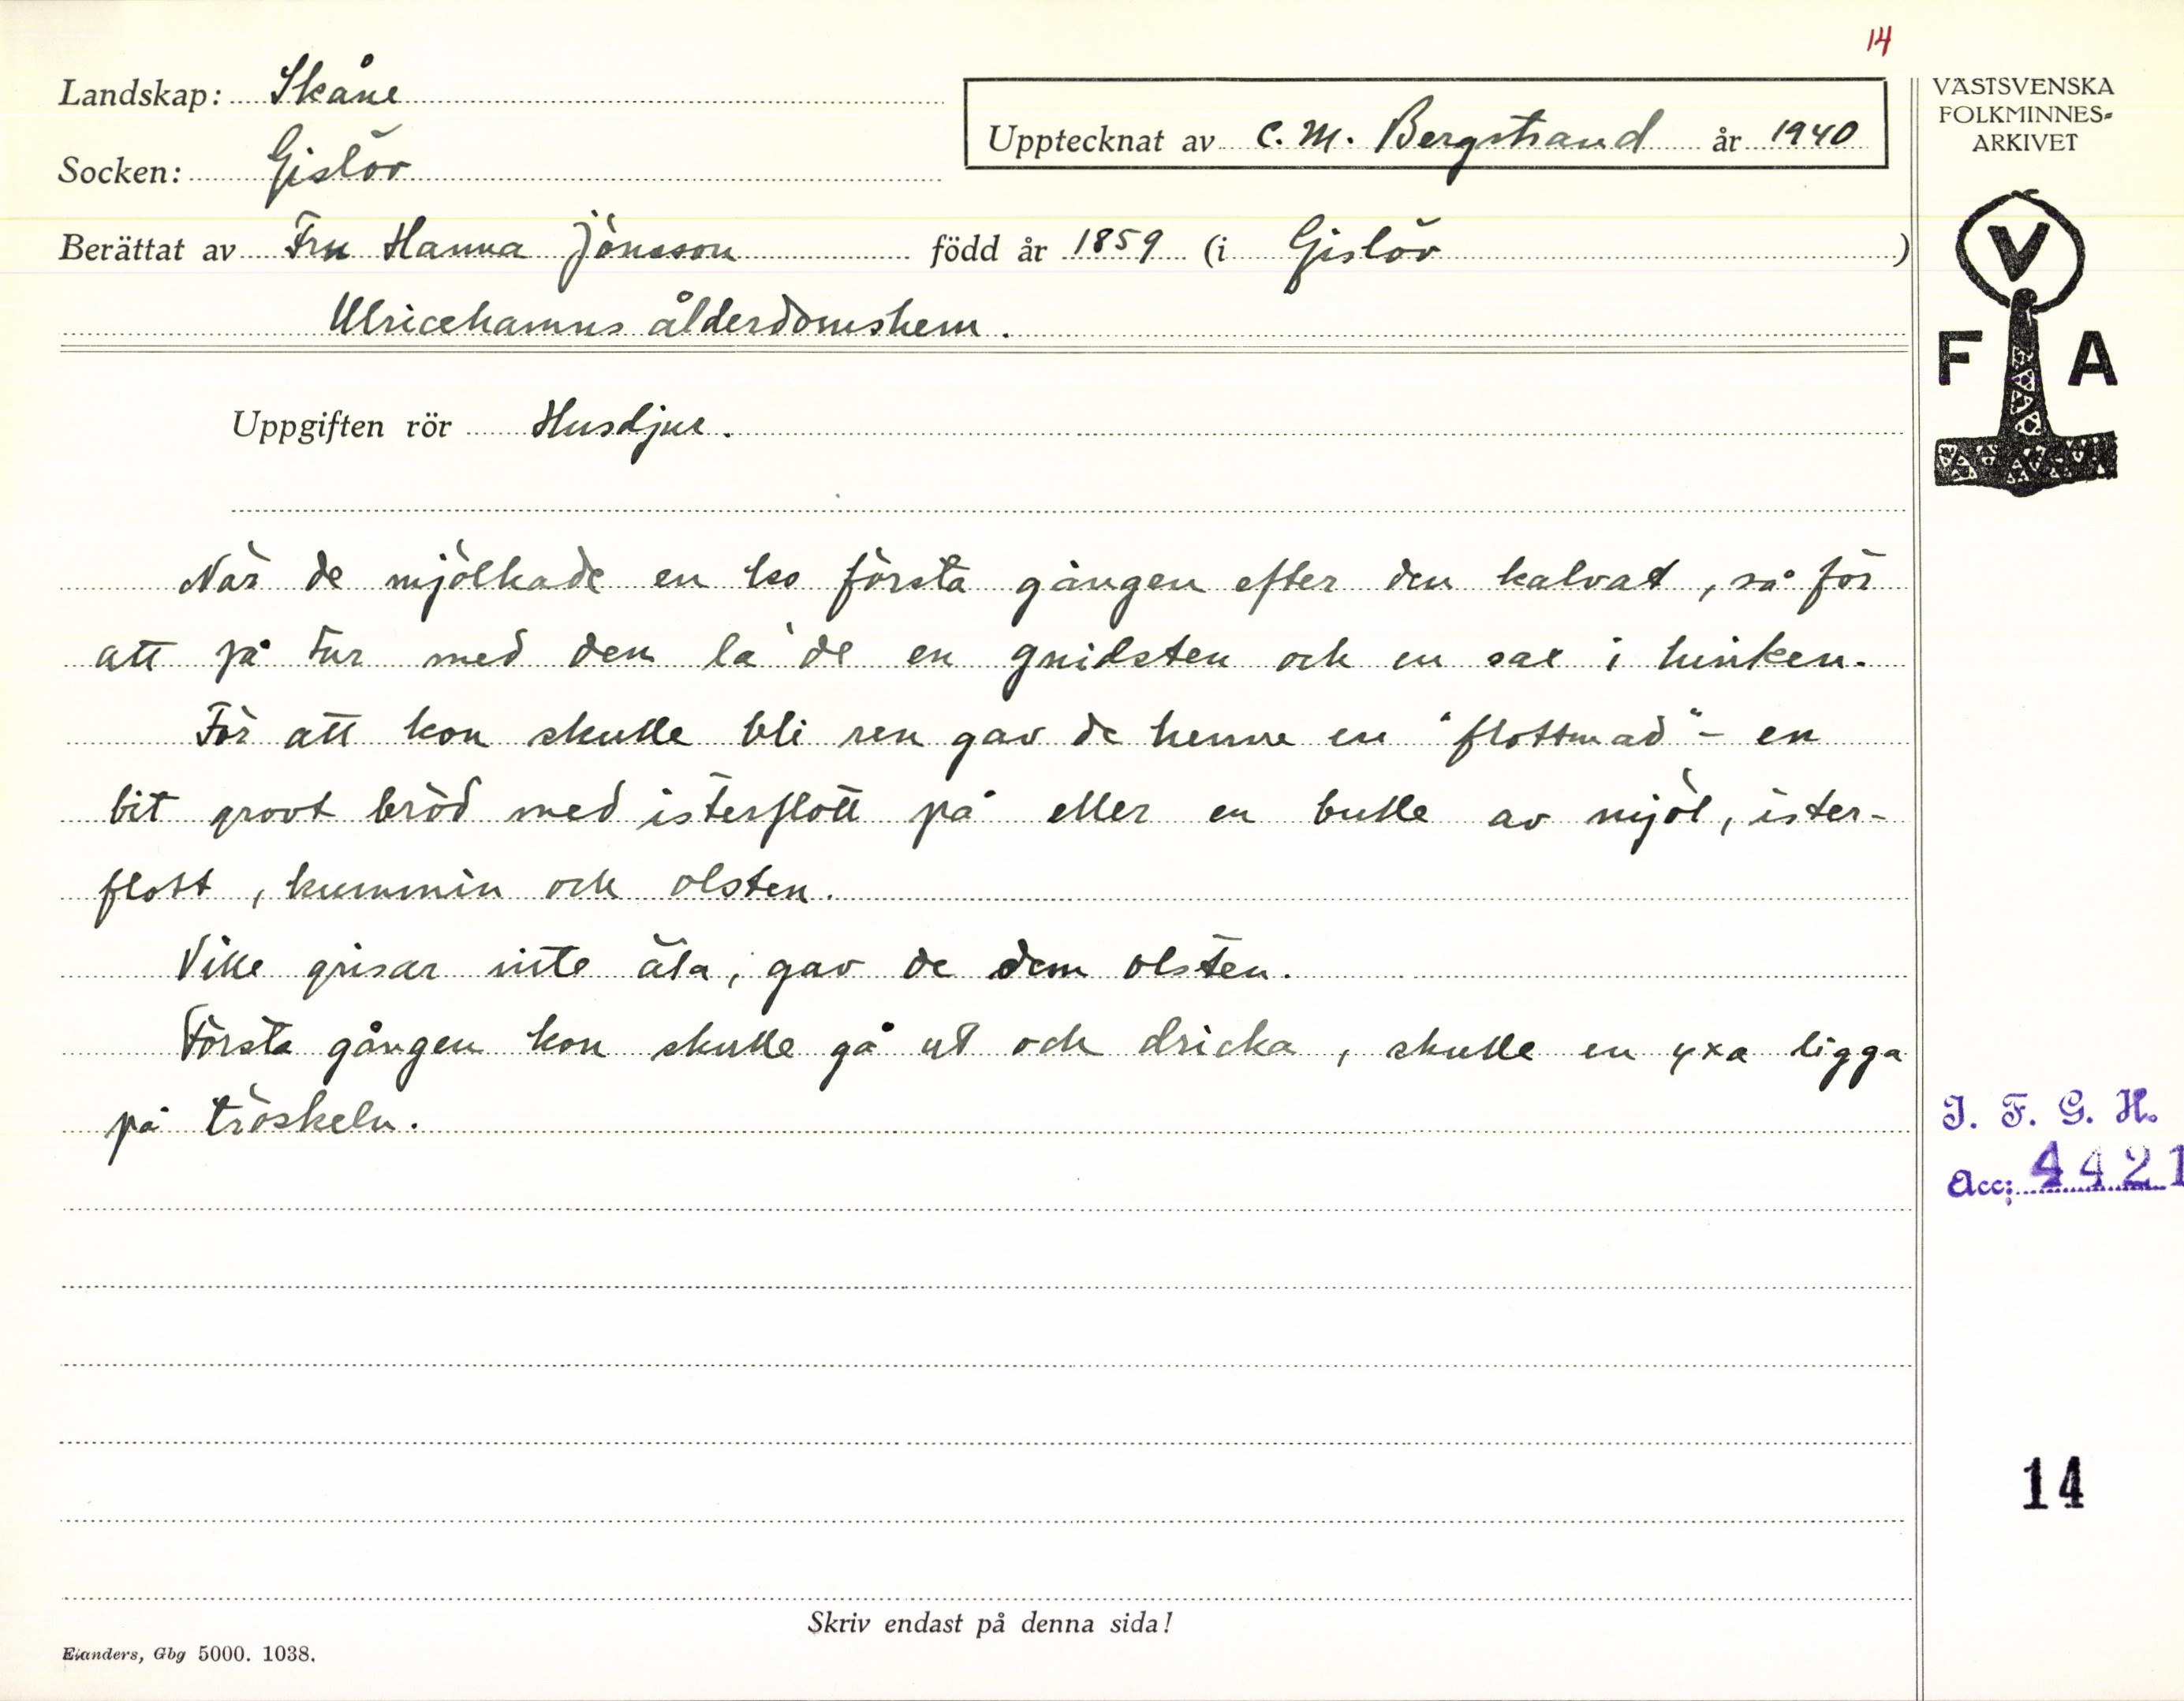 14
Landskap: Skåne
Upptecknat av C. M. Bergstrand år 1940
Socken: Gislöv
Berättat av Fru Hanna Jönsson född år 1859 (i Gislöv )
Ulricehamns ålderdomshem.
Uppgiften rör Husdjur.
När de mjölkade en ko första gången efter den kalvat, så för
att få tur med den la' de en gnidsten och en sax i hinken.
För att kon skulle bli ren gav de henne en "flottmad" - en
bit grovt bröd med isterflott på eller en bulle av mjöl, ister-
flott, kummin och olsten.
Ville grisar inte äta, gav de dem olsten.
Första gången kon skulle gå ut och dricka, skulle en yxa ligga
på tröskeln.
Skriv endast på denna sida!
Elanders, Gbg 5000. 1038.
VÄSTSVENSKA
FOLKMINNES-
ARKIVET
V
F A
I. F. G. H.
Acc: 4421
14